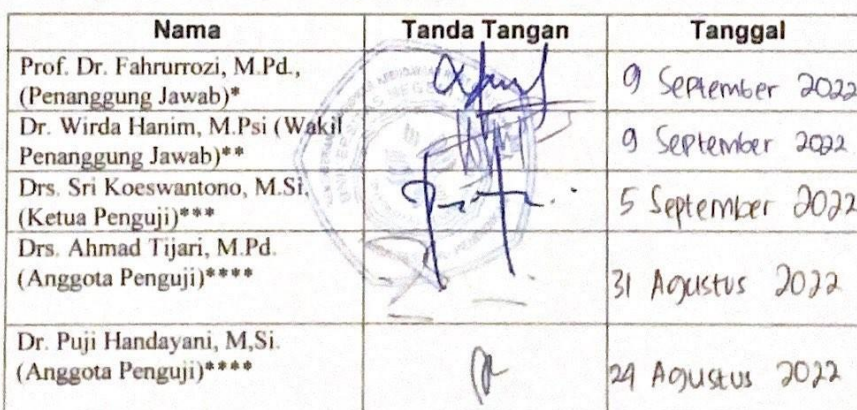 Nama Tanda Tangan Tanggal
Prof. Dr. Fahrurrozi, M.Pd.,
(Penanggung Jawab)* 9 September 2022
Dr. Wirda Hanim, M.Psi (Wakil
Penanggung Jawab)** 9 September 2022
Drs. Sri Koeswantono, M.Si.
(Ketua Penguji)*** 5 September 2022
Drs. Ahmad Tijari, M.Pd.
(Anggota Penguji)**** 31 Agustus 2022
Dr. Puji Handayani, M,Si.
(Anggota Penguji)**** 24 Agustus 2022